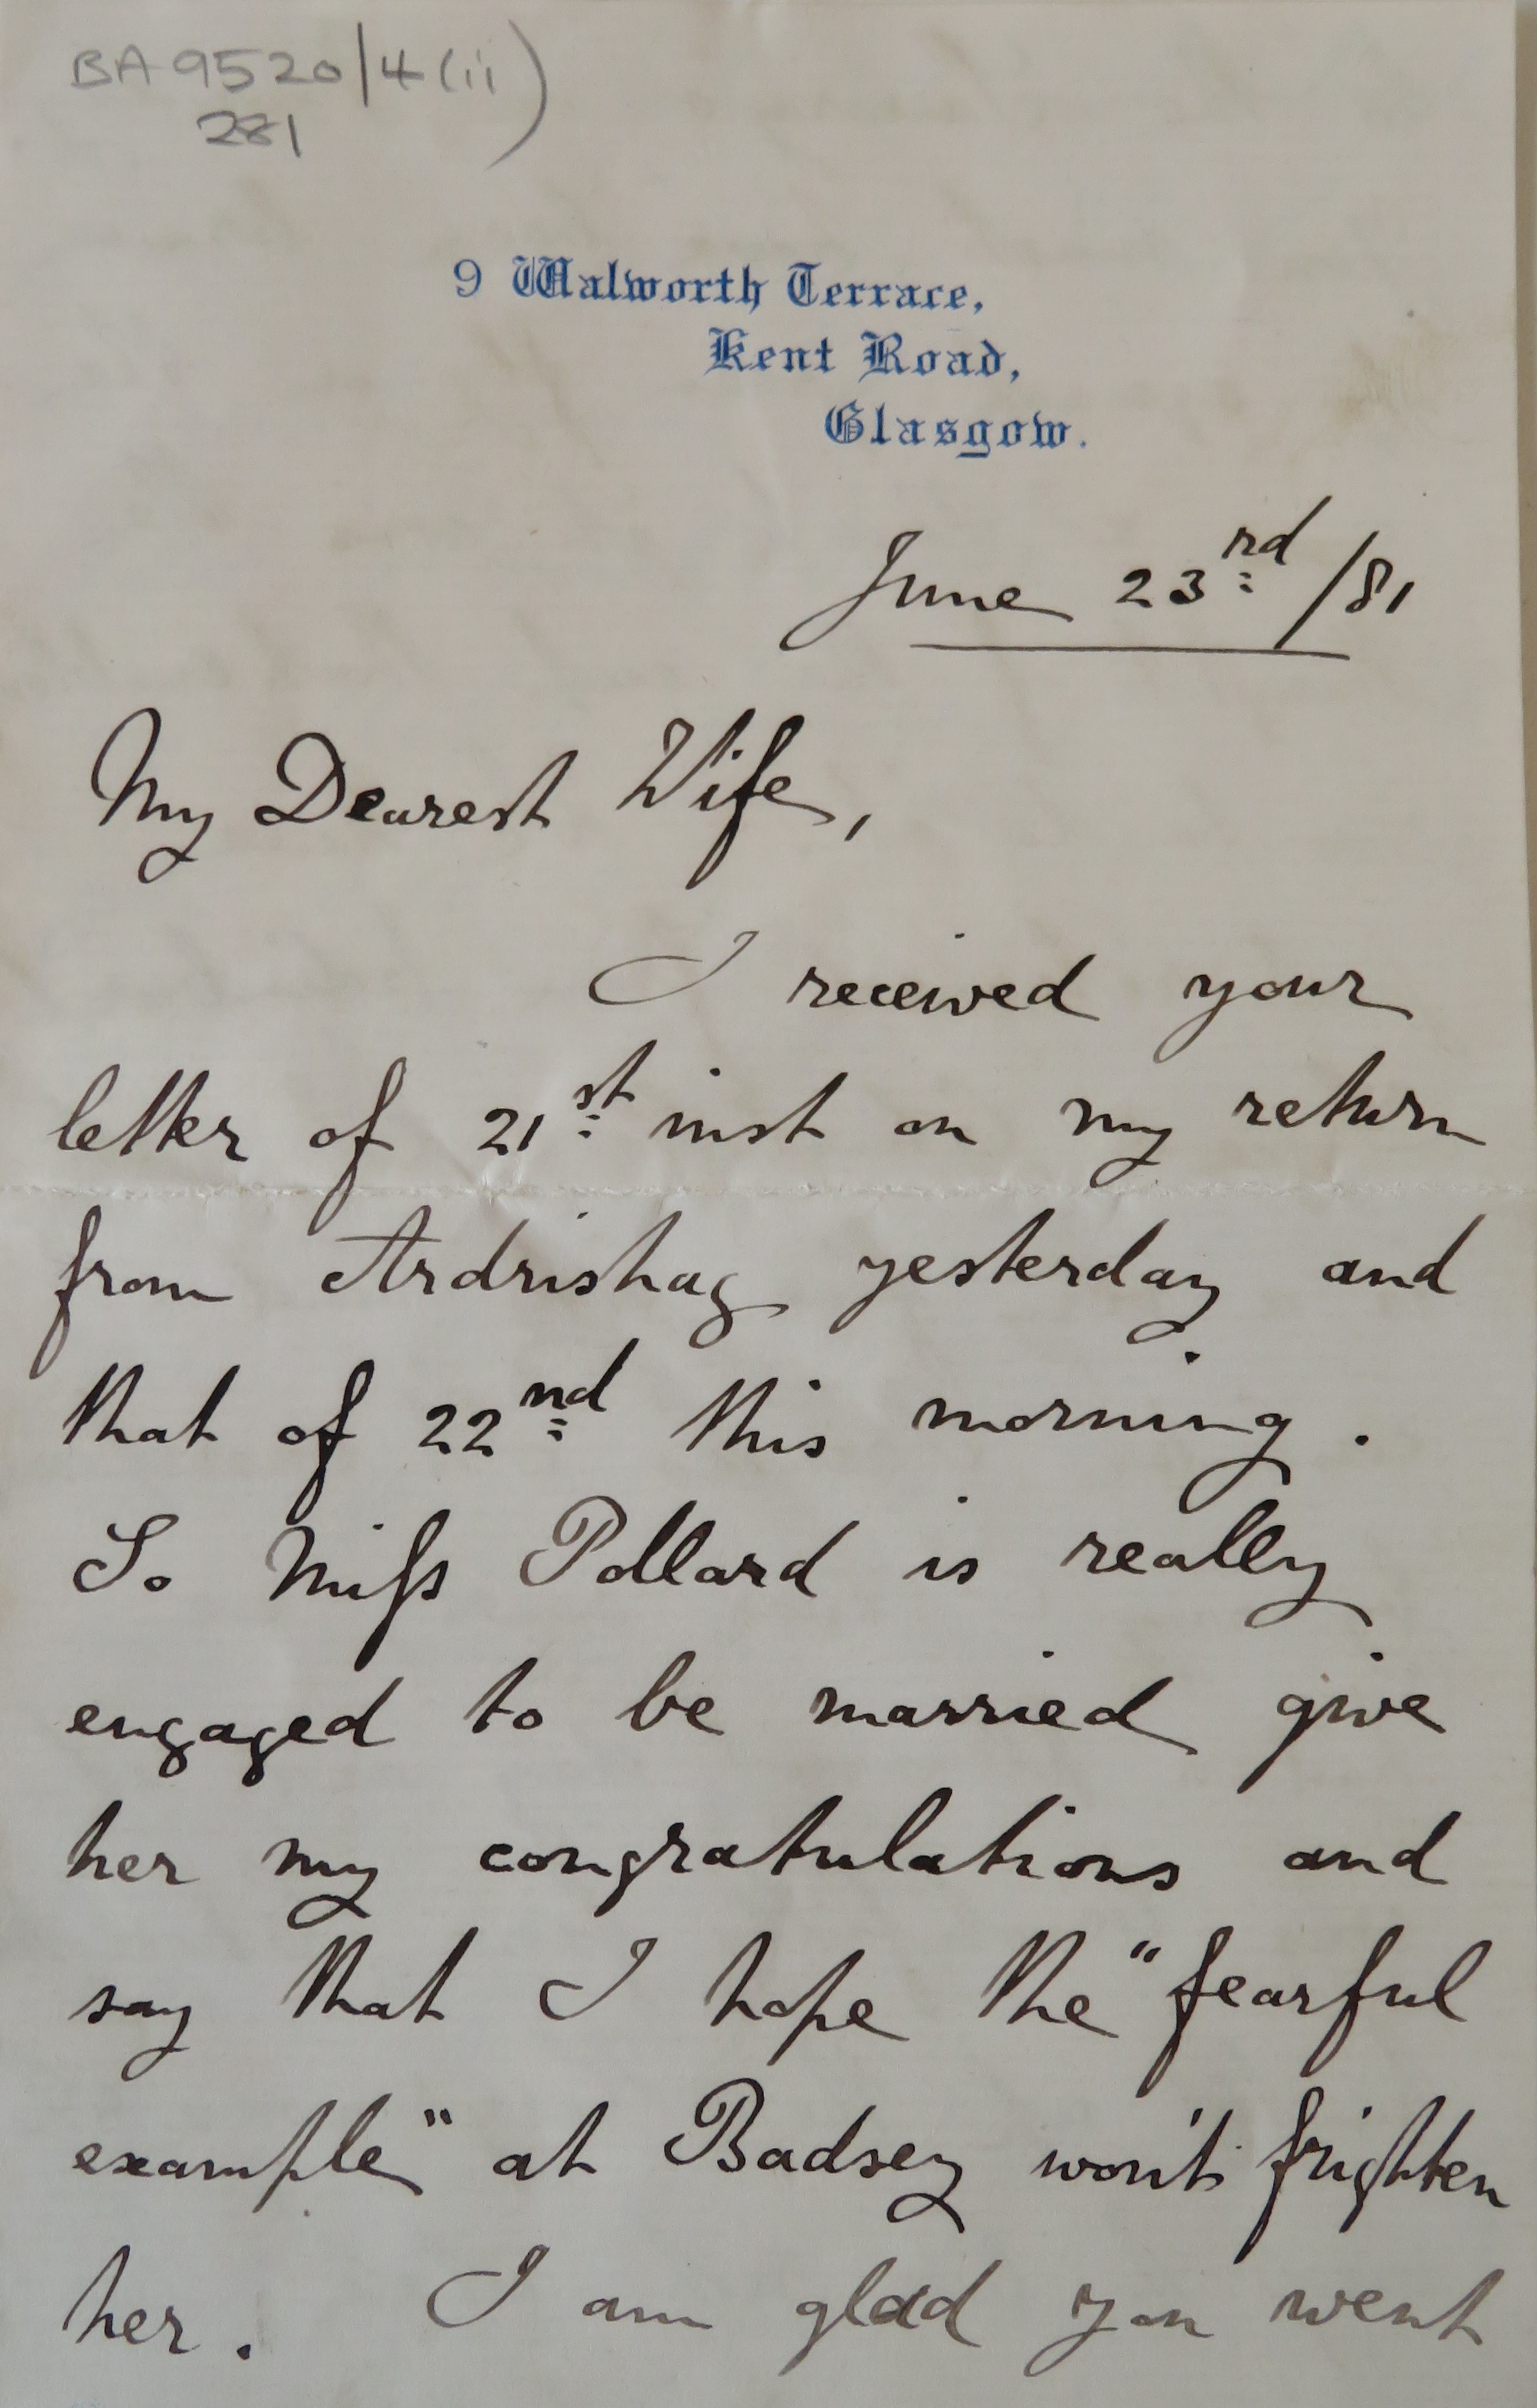 BA 9520/4(ii)
281
9 Walworth Terrace,
Kent Road,
Glasgow.
June 23rd /81
My Dearest Wife,
I received your
letter of 21st inst on my return
from Ardrishag yesterday and
that of 22nd this morning.
So Miſs Pollard is really
engaged to be married give
her my congratulations and
say that I hope the "fearful
example" at Badsey won't frighten
her. I am glad you went